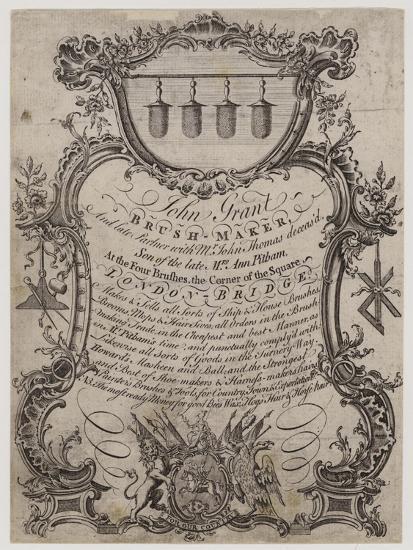 John Grant
BRUSH-MAKER,
And late Partner with Mr. John Thomas deceas'd.
Son of the late Mrs. Ann Pitham,
At the Four Brushes, the Corner of the Square
LONDON-BRIDGE.
Makes & Sells all Sorts of Ship & House Brushes
Brooms, Mops & Hair Sives, all Orders in the Brush
making Trade in the Cheapest and best Manner, as
in Mrs. Pitham's time, and punctually comply'd with.
Likewise all Sorts of Goods in the Turnery Way
and Ball, and the Strongest
and Best of Shoe-makers & Harness-makers
Painters Brushes & Tools for Country, Town & Exportation
NB. The most ready Money for good Bees Wax, Hogs Hair & Horse hair
FOR OUR COUNTRY